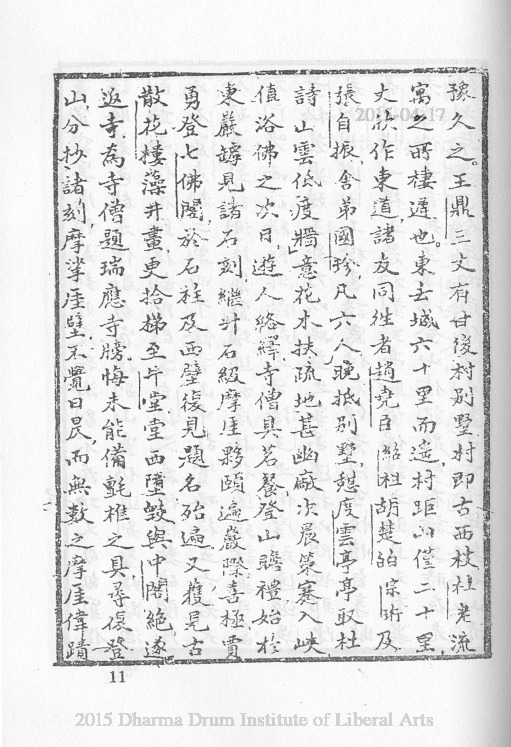 豫久之。王鼎三丈有甘後村別墅村即古西枝社老流
寓之所棲遲也。東去城六十里而遙，村距山僅二十里，
丈欣作東道，諸友同往者趙堯臣 紹祖 胡楚白 宗珩 及
張自振，舍弟國珍，凡六人。晚抵別墅，憩度雲亭，亭取杜
詩山雲低度牆意，花木扶疏，地甚幽敞。次晨策蹇入峽，
值浴佛之次日，遊人絡繹，寺僧具茗餐，登山瞻禮。始於
東巖罅見諸石刻，繼升石級，摩厓夥頤，遍巖隙，喜極賈
勇，登七佛閣，於石柱及西壁復見題名殆遍，又獲見古
散花樓藻井畫，更拾梯至牛堂，堂西墮毀，與中閣絕，遂
返寺，為寺僧題瑞應寺牓，悔未能備氈椎之具，尋復登
山，分抄諸刻，摩挲厓壁，不覺日昃，而無數之摩厓偉蹟
11
2015-04-17
2015 Dharma Drum Institute of Liberal Arts